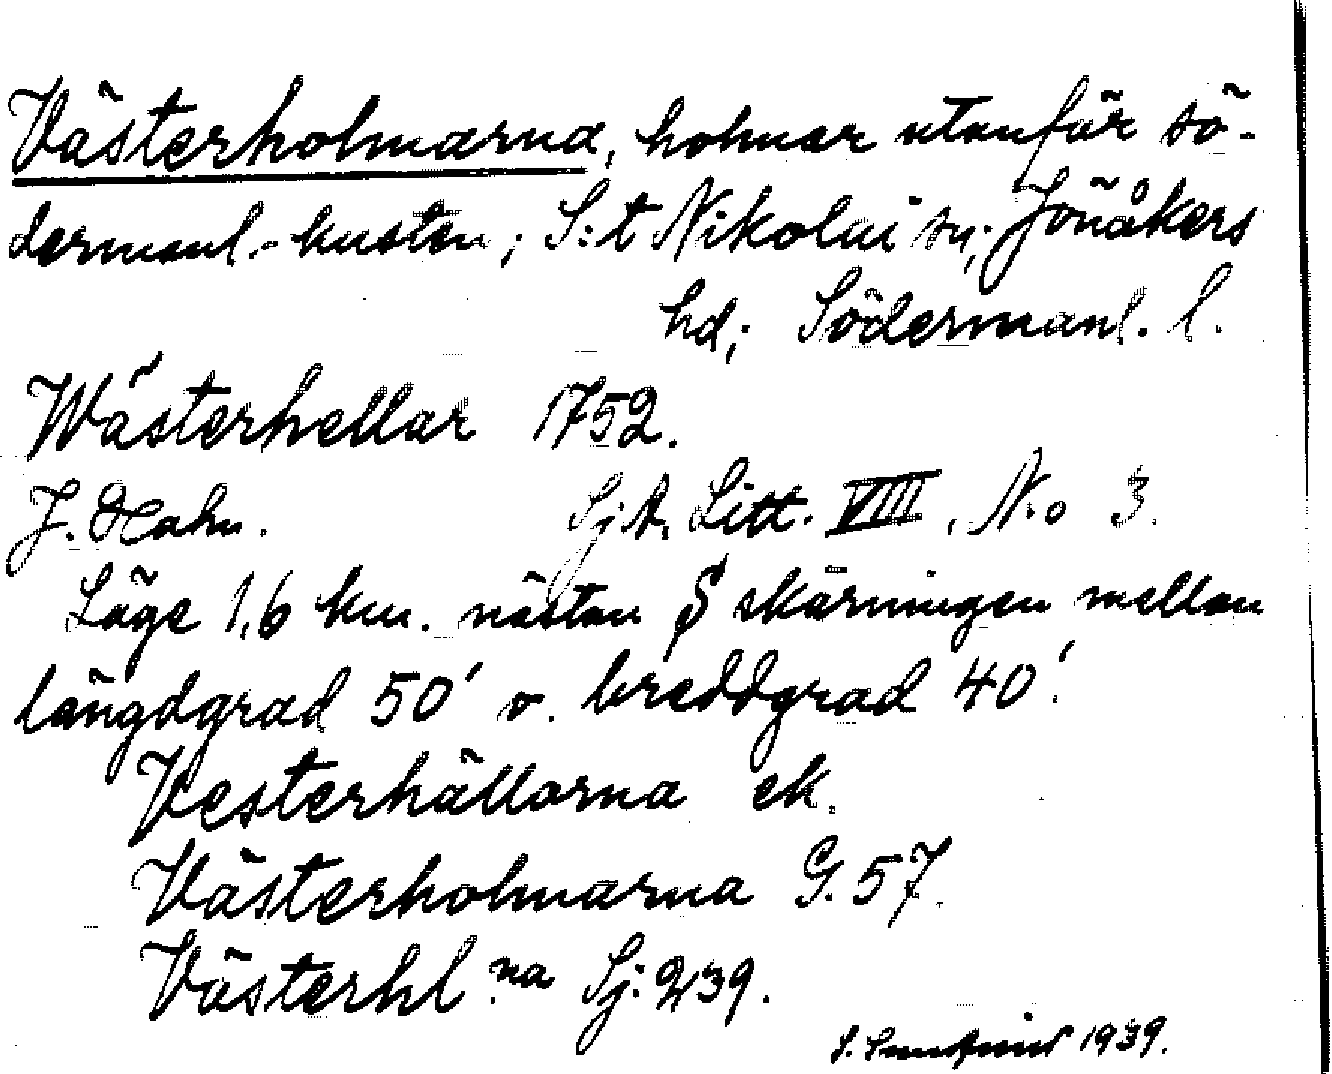 Västerholmarna, holmar utanför sö-
dermanl.-kusten; S:t Nikolai sn; Jönåkers
hd; Södermanl. l.
Wästerhellar 1752.
J. Hahn. SjA, Litt. VIII, No 3.
Läge 1,6 km. nästan S skärningen mellan
längdgrad 50′ o. breddgrad 40′.
Vesterhällorna ek.
Västerholmarna G. 57.
Västerhl:na Sj. 239.
1939.